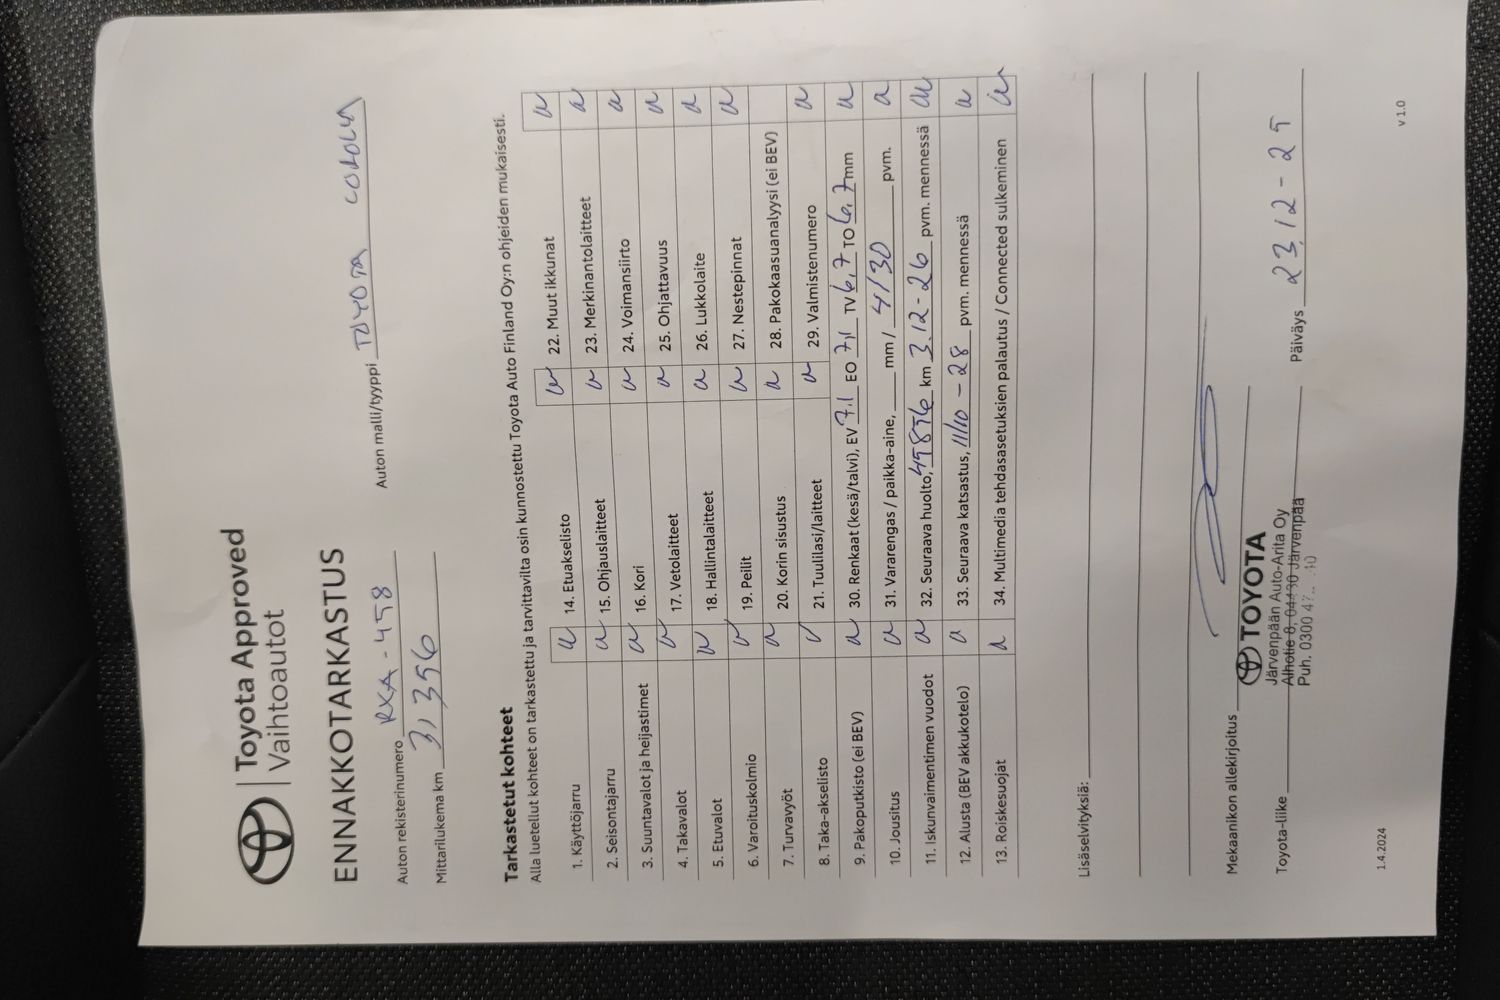 Toyota Approved
Vaihtoautot
ENNAKKOTARKASTUS
Auton rekisterinumero RXA-458 Auton malli/tyyppi TOYOTA COROLLA
Mittarilukema km 31396
Tarkastetut kohteet
Alla luetellut kohteet on tarkastettu ja tarvittavilta osin kunnostettu Toyota Auto Finland Oy:n ohjeiden mukaisesti.
1. Käyttöjarru
2. Seisontajarru
3. Suuntavalot ja heijastimet
4. Takavalot
5. Etuvalot
6. Varoituskolmio
7. Turvavyöt
8. Taka-akselisto
9. Pakoputkisto (ei BEV)
10. Jousitus
11. Iskunvaimentimen vuodot
12. Alusta (BEV akkukotelo)
13. Roiskesuojat
14. Etuakselisto
15. Ohjauslaitteet
16. Kori
17. Vetolaitteet
18. Hallintalaitteet
19. Peilit
20. Korin sisustus
21. Tuulilasi/laitteet
22. Muut ikkunat
23. Merkinantolaitteet
24. Voimansiirto
25. Ohjattavuus
26. Lukkolaite
27. Nestepinnat
28. Pakokaasuanalyysi (ei BEV)
29. Valmistenumero
30. Renkaat (kesä/talvi), EV 7,1 EO 7,1 TV 6,7 TO 6,7 mm
31. Vararengas / paikka-aine, mm / 4/30 pvm.
32. Seuraava huolto, km 3.12-26 pvm. mennessä
33. Seuraava katsastus, 11/10 - 28 pvm. mennessä
34. Multimedia tehdasasetuksien palautus / Connected sulkeminen
Lisäselvityksiä:
Mekaanikon allekirjoitus
TOYOTA
Toyota-liike Järvenpään Auto-Arita Oy Päiväys 23.12-25
Alhotie 8, 04430 Järvenpää
Puh. 0300 47
1.4.2024 v 1.0